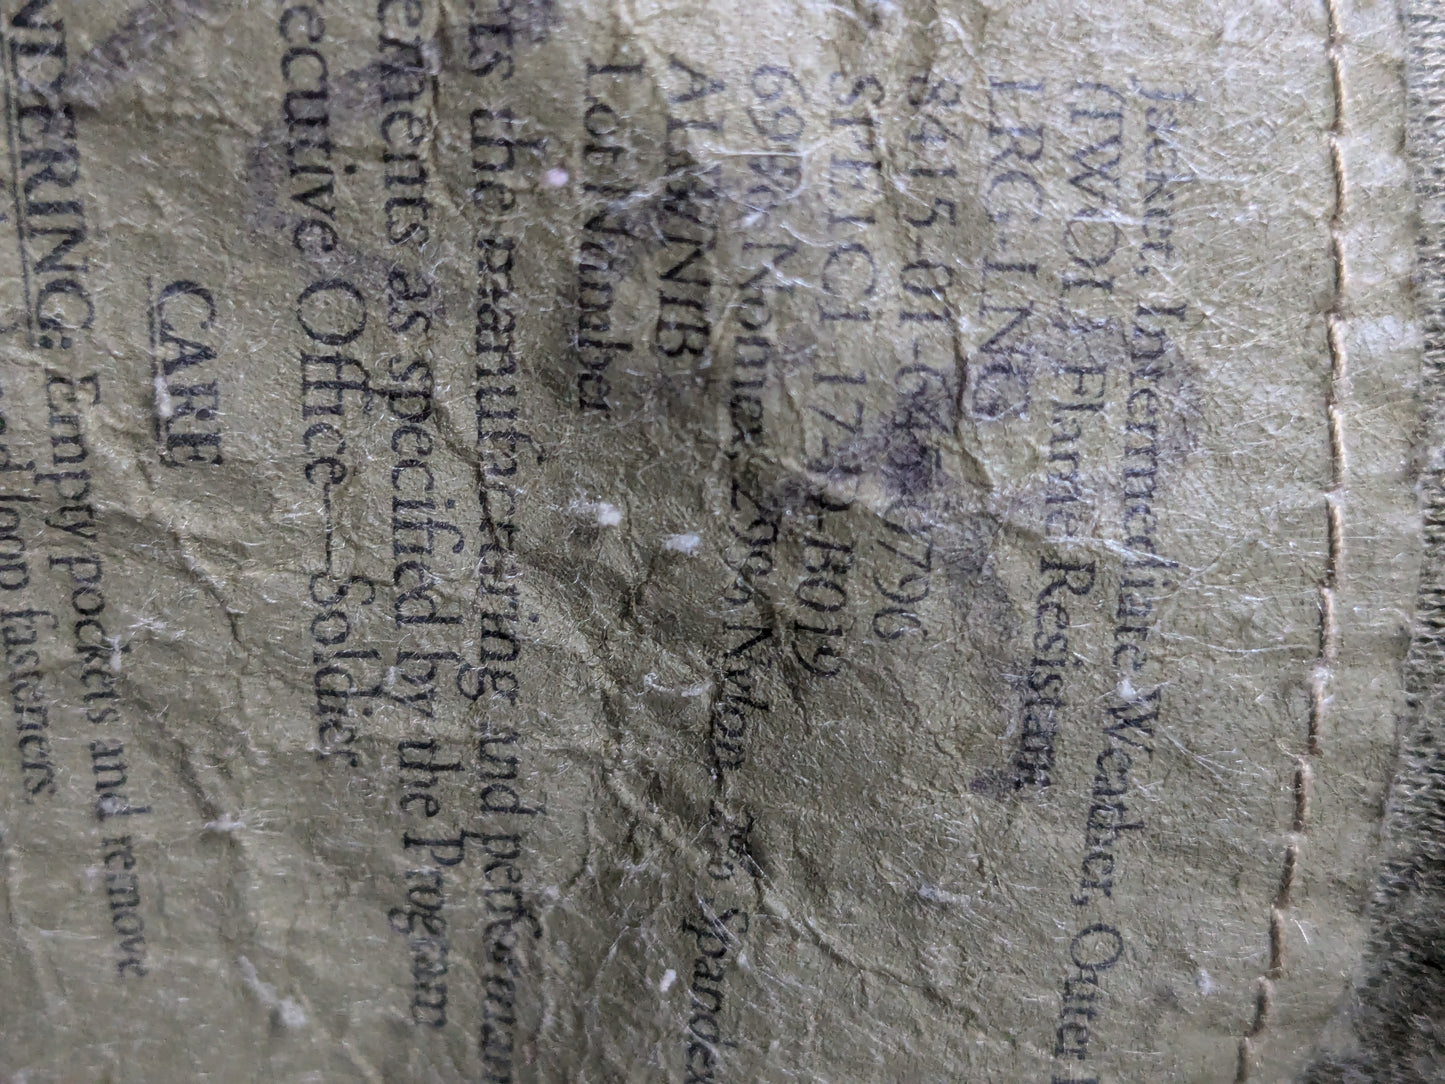 Jacket, Intermediate Weather, Outer
(IWOL), Flame Resistant
LRG-LNG
8415-01-645-7796
SPE1C1-17-D-B019
69% Nomex 29% Nylon 2% Spandex
ALBWNIB
Lot Number
ts the manufacturing and performan
ements as specified by the Program
ecutive Office—Soldier
CARE
NDERING: Empty pockets and remove
loop fasteners.